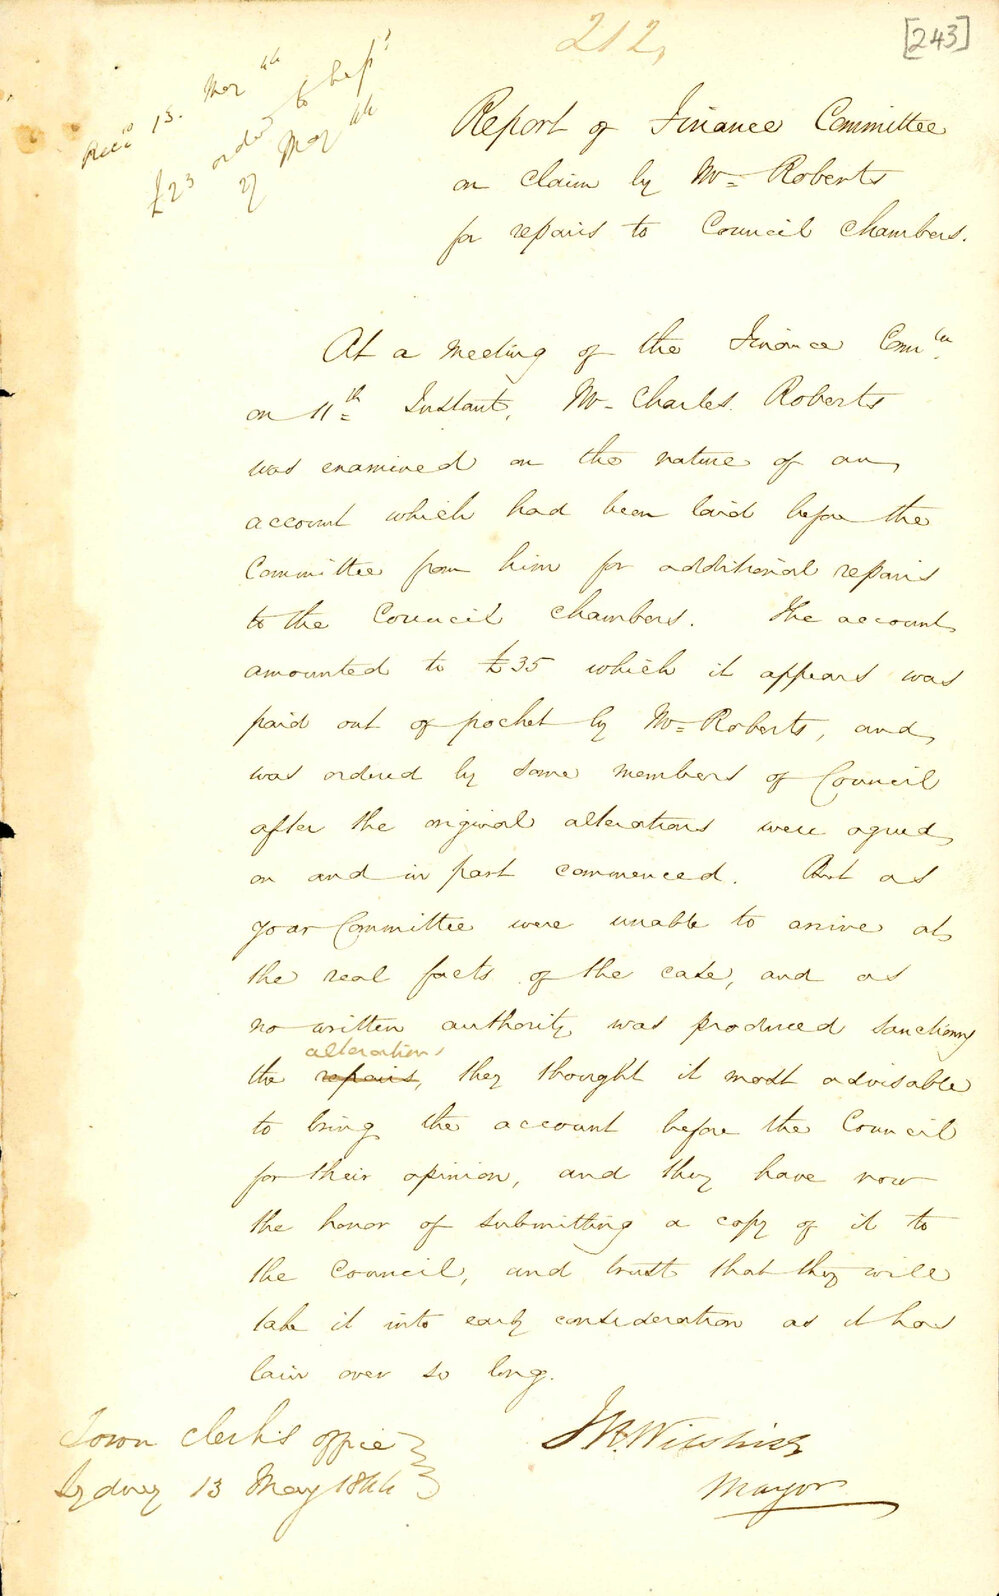 212,
[243]
Recd 13. May 44
£23 ordered to be pd
27 May 44
Report of Finance Committee
on Claim by Mr Roberts
for repairs to Council Chambers.
At a Meeting of the Finance Comtee
on 11th Instant, Mr Charles Roberts
was examined on the nature of an
account which had been laid before the
Committee from him for additional repairs
to the Council Chambers. The account
amounted to £35 which it appears was
paid out of pocket by Mr Roberts, and
was ordered by some members of Council
after the original alterations were agreed
on and in part commenced. But as
your Committee were unable to arrive at
the real facts of the case, and as
no written authority was produced sanctioning
alterations
the repairs, they thought it most advisable
to bring the account before the Council
for their opinion, and they have now
the honor of submitting a copy of it to
the Council, and trust that they will
take it into early consideration as it has
lain over so long.
Town Clerk's office
Sydney 13 May 1844
J R Wilshire
Mayor